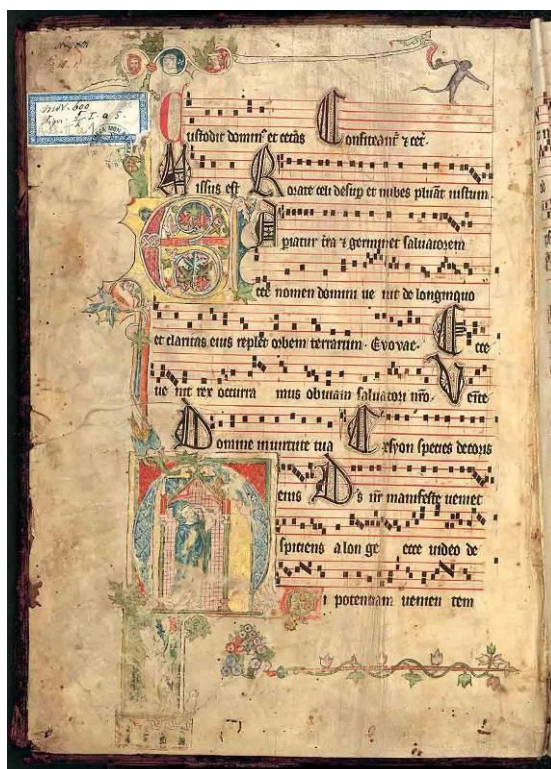 Custodit domin⁹ et cetas Confiteant̃ ⁊ cet̃.
Missus est Rorate celi desup et nubes pluãt iustum.
Apiatur t̃ra ⁊ germinet saluatorem
Ecce nomen domini ue nit de longinquo
et claritas eius replet orbem terrarum. Evovae. Ecce
ue nit rex occurra mus obuiam saluatori nr̃o. Venite
Domine in uirtute tua Ex syon species decoris
eius Ds nr̃ manifeste ueniet
Aspiciens a lon ge ecce uideo de
i potentiam uenien tem